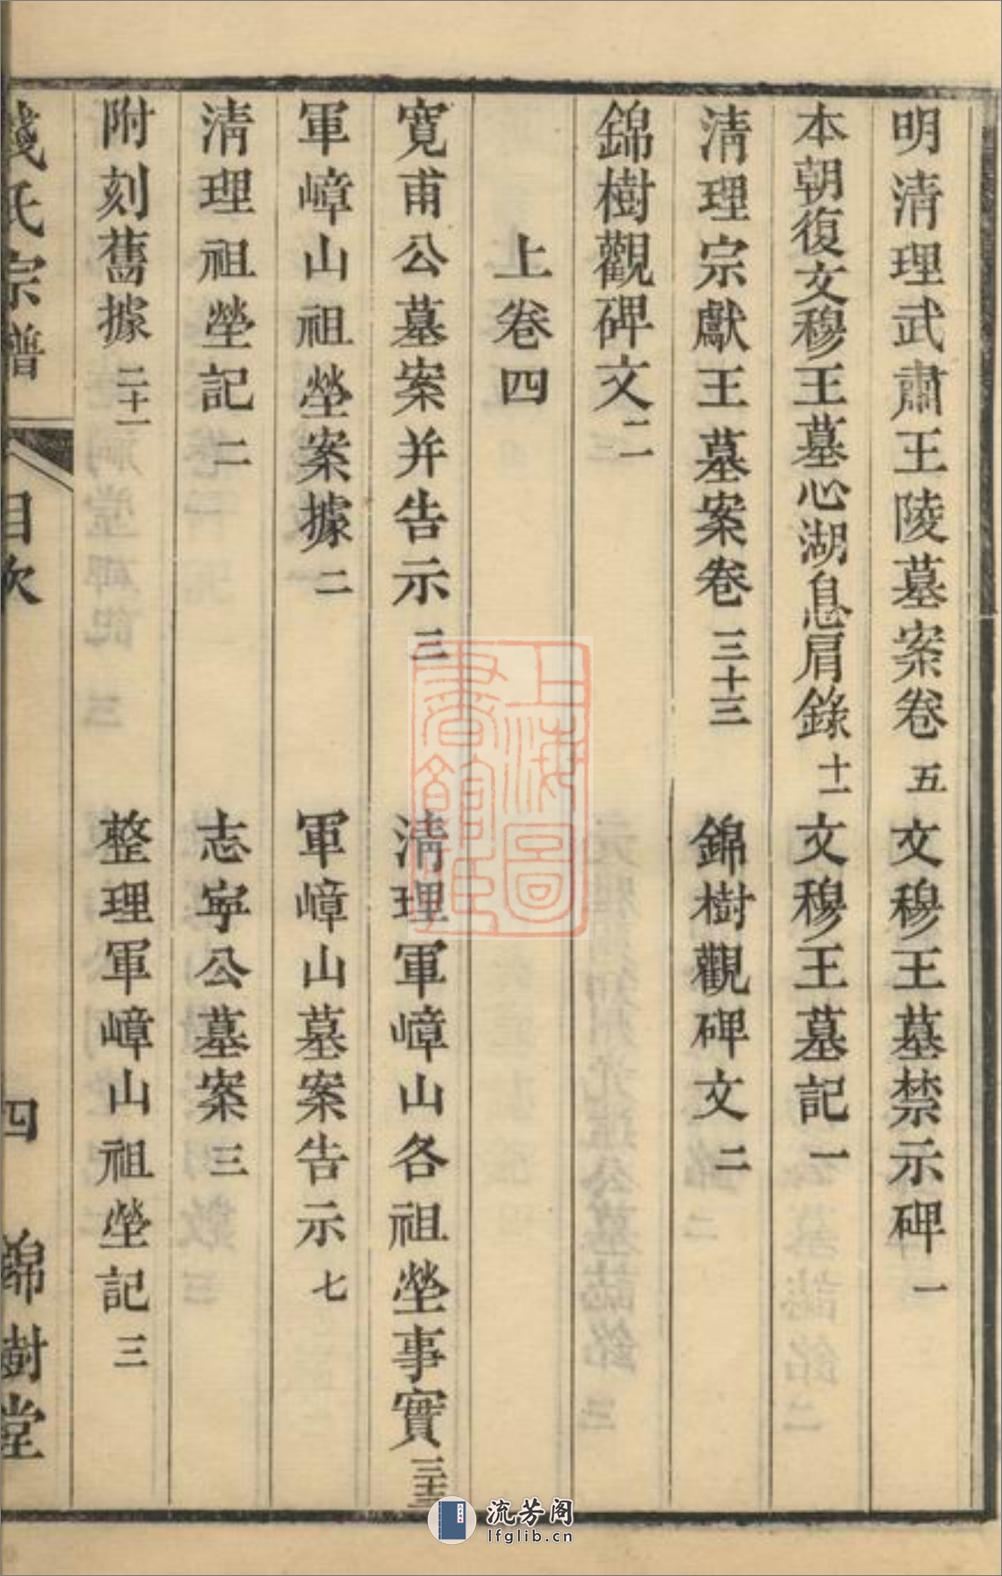 明清理武肅王陵墓案卷 五 文穆王墓禁示碑 一
本朝復文穆王墓心湖息肩錄 十一 文穆王墓記 一
清理宗獻王墓案卷 三十三 錦樹觀碑文 二
錦樹觀碑文 二
上卷四
寬甫公墓案并告示 三 清理軍嶂山各祖塋事實 三十三
軍嶂山祖塋案據 二 軍嶂山墓案告示 七
清理祖塋記 二 志寧公墓案 三
附刻舊據 二十一 整理軍嶂山祖塋記 三
錢氏宗譜 目次 四 錦樹堂
上海圖書館藏
流芳阁
lfglib.cn